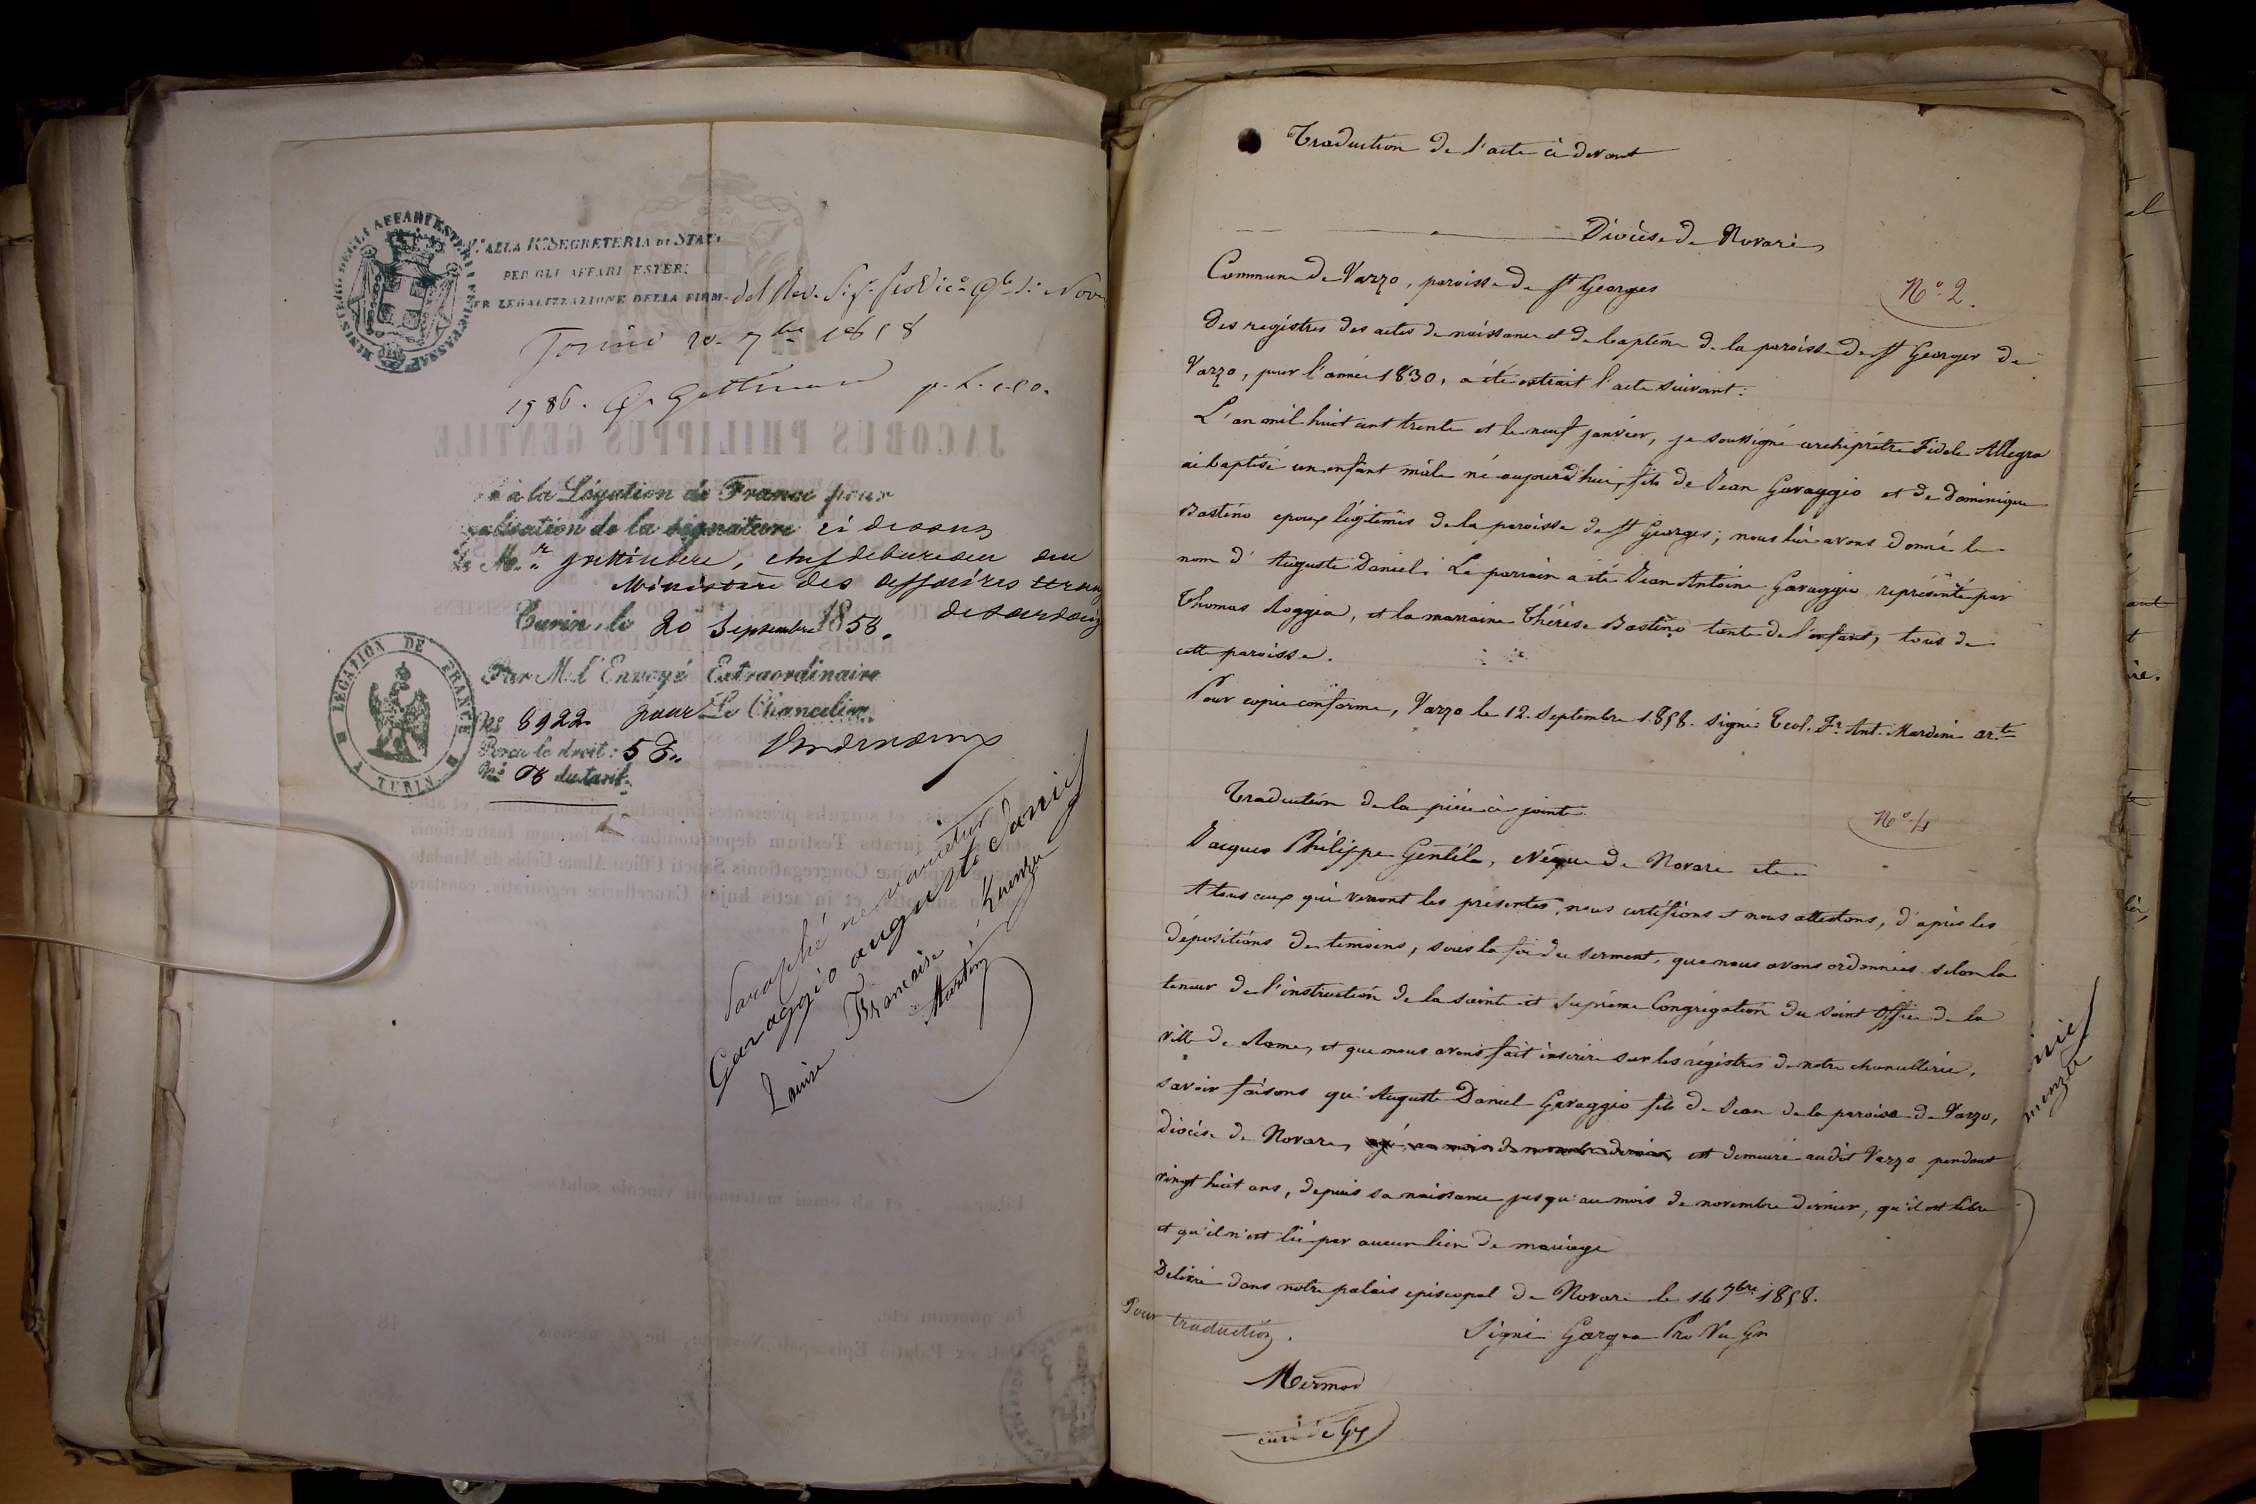 MINISTERO DEGLI AFFARI ESTERI
V.° ALLA R.ª SEGRETERIA DI STATO
PER GLI AFFARI ESTERI
PER LEGALIZZAZIONE DELLA FIRMA del Rev. Sig.
Torino 20 7bre 1858
1986.
JACOBUS PHILIPPUS GENTILE
à la Légation de France pour
légalisation de la signature ci dessus
de M.r chef de bureau au
Ministère des affaires
de Sardaigne
Turin, le 20 Septembre 1858.
LEGATION DE FRANCE A TURIN
Par M. l'Envoyé Extraordinaire
pour Le Chancelier
No 8922
Perçu le droit: 5
No du tarif.
Paraphé ne varietur
Garaggio auguste daniel
Louise Francoise Kuenzu
Martin
Traduction de l'acte ci devant
Diocèse de Novare
Commune de Varzo, paroisse de St Georges
No. 2.
Des registres des actes de naissance et de baptême de la paroisse de St Georges de
Varzo, pour l'année 1830, a été extrait l'acte suivant:
L'an mil huit cent trente et le neuf janvier, je soussigné archiprêtre Fidele Allegra
ai baptisé un enfant mâle né aujourd'hui, fils de Jean Gavaggio et de dominique
Bastino epoux légitimes de la paroisse de St Georges; nous lui avons donné le
nom d'Auguste Daniel. Le parrain a été Jean Antoine Gavaggio représenté par
Thomas Roggia, et la marraine Thérèse Bastino tante de l'enfant, tous de
cette paroisse.
Pour copie conforme, Varzo le 12 Septembre 1858. Signé: Teol. Fr. Ant. Mardini ar.te
Traduction de la pièce ci jointe
No. 4
Jacques Philippe Gentile, evêque de Novare etc
A tous ceux qui verront les présentes, nous certifions et nous attestons, d'après les
dépositions de temoins, sous la foi du serment, que nous avons ordonnées selon la
teneur de l'instruction de la sainte et Suprême Congrégation du Saint Office de la
ville de Rome, et que nous avons fait inscrire sur les régistres de notre chancellerie,
savoir faisons qu'Auguste Daniel Gavaggio fils de Jean de la paroisse de Varzo,
diocèse de Novare, est demeuré audit Varzo pendant
vingt huit ans, depuis sa naissance jusqu'au mois de novembre dernier, qu'il est libre
et qu'il n'est lié par aucun lien de mariage
Délivré dans notre palais episcopal de Novare le 16 7bre 1858.
Pour traduction.
Signé Pro Vic Gn
Mermod
curé de Gex